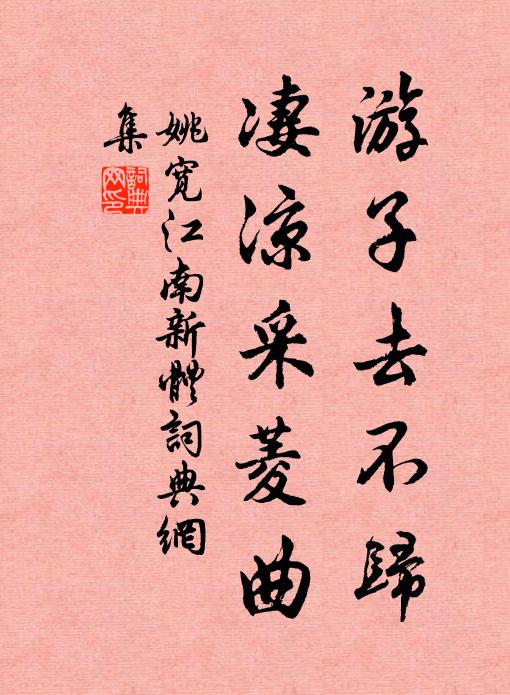 游子去不歸
凄凉采菱曲
姚寛江南新體詞典網
集
詞典網印